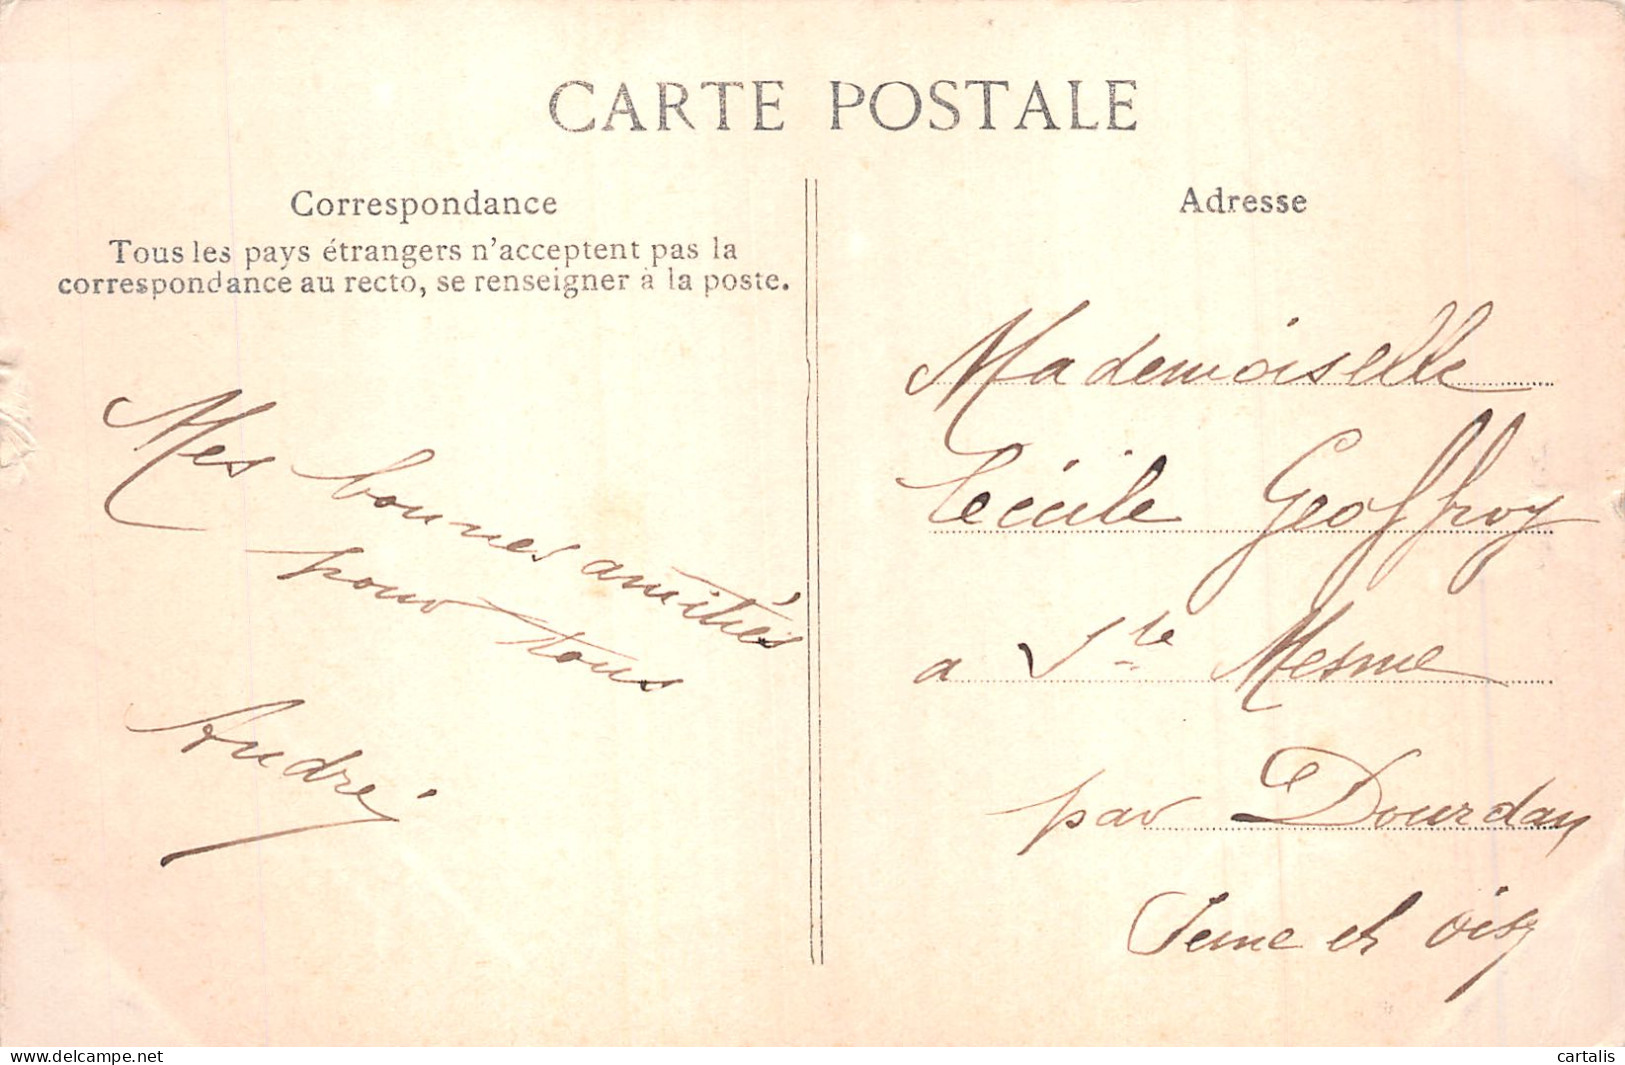 CARTE POSTALE
Correspondance
Tous les pays étrangers n'acceptent pas la
correspondance au recto, se renseigner à la poste.
Mes bonnes amitiés
pour tous
André
Adresse
Mademoiselle
Cécile Geoffroy
a Ste Mesme
par Dourdan
Seine et Oise
www.delcampe.net
cartalis